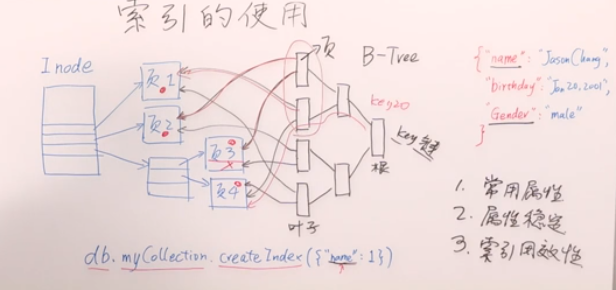 索引的使用
Inode
页1
页2
页3
页4
页
B-Tree
key20
key键
根
叶子
{"name": "Jason Chang",
"birthday": "Jan 20, 2001",
"Gender": "male"
}
1. 常用属性
2. 属性稳定
3. 索引用效性
db.myCollection.createIndex({"name": 1})